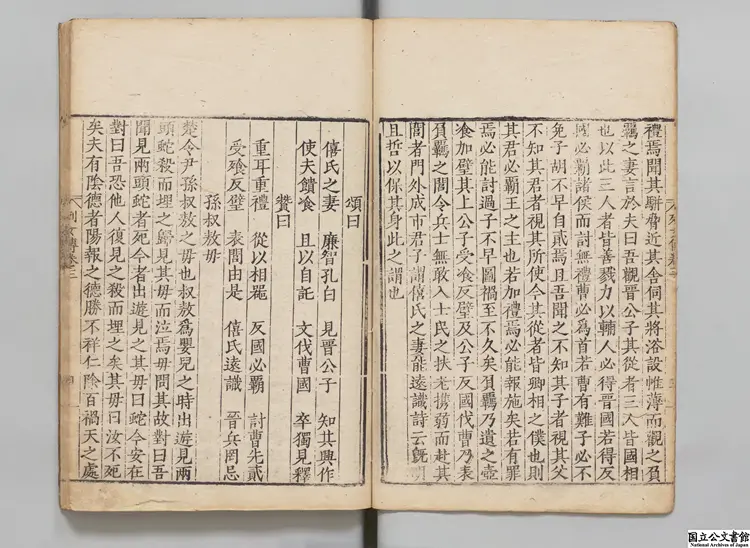 禮焉聞其駢脅近其舍伺其將浴設帷薄而觀之負
羈之妻言於夫曰吾觀晉公子其從者三人皆國相
也以此三人者皆善戮力以輔人必得晉國若得反
國必霸諸侯而討無禮曹必爲首若曹有難子必不
免子胡不早自貳焉且吾聞之不知其子者視其父
不知其君者視其所使今其從者皆卿相之僕也則
其君必霸王之主也若加禮焉必能報施矣若有罪
焉必能討過子不早圖禍至不久矣負羈乃遺之壺
飡加璧其上公子受飡反璧及公子反國伐曹乃表
負羈之閭令兵士無敢入士民之扶老携弱而赴其
閭者門外成市君子謂僖氏之妻能遠識詩云旣明
且哲以保其身此之謂也
頌曰
僖氏之妻 廉智孔白 見晉公子 知其興作
使夫饋飡 且以自託 文伐曹國 卒獨見釋
贊曰
重耳重禮 從以相羈 反國必霸 討曹先貳
受飱反璧 表閭由是 僖氏遠識 晉兵罔忌
孫叔敖母
楚令尹孫叔敖之母也叔敖爲嬰兒之時出遊見兩
頭蛇殺而埋之歸見其母而泣焉母問其故對曰吾
聞見兩頭蛇者死今者出遊見之其母曰蛇今安在
對曰吾恐他人復見之殺而埋之矣其母曰汝不死
矣夫有陰德者陽報之德勝不祥仁除百禍天之處
列女傳卷三
国立公文書館
National Archives of Japan